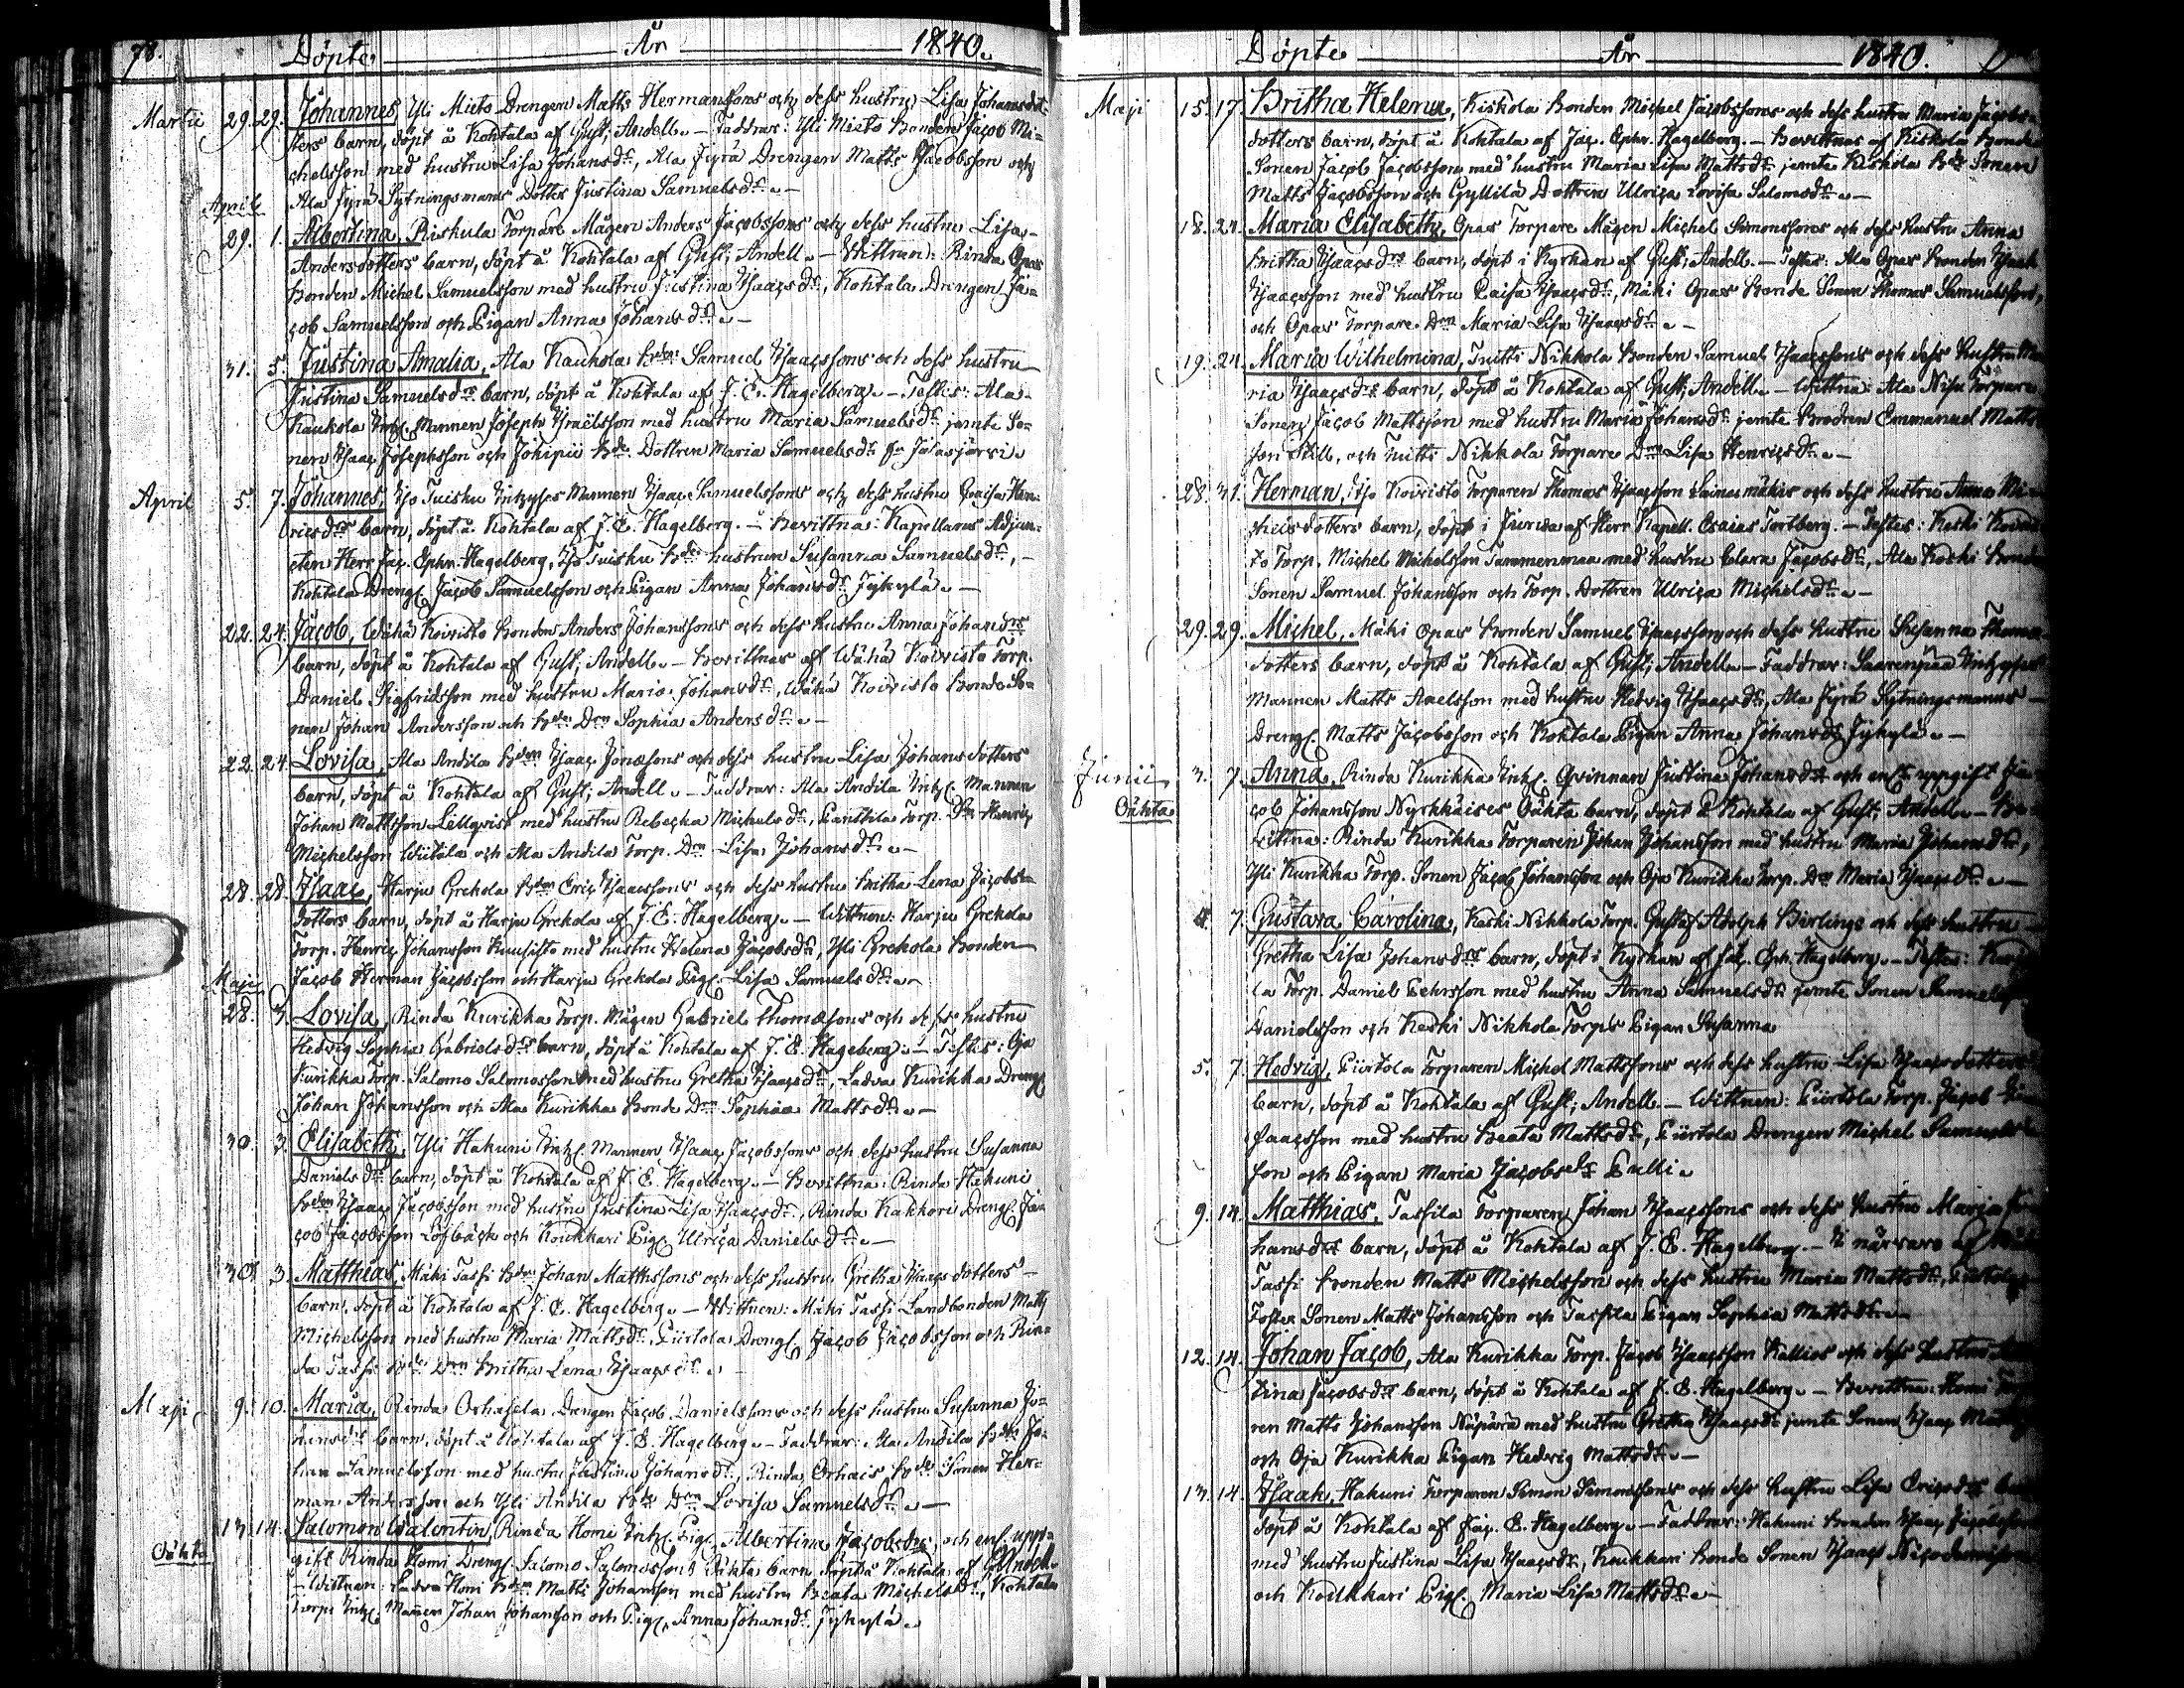 78. Döpte År 1840.
Martii 29. 29. Johannes, Yli Mieto Drengen Matts Hermanssons och dess hustru Lisa Johansdot-
ters barn, döpt å Kohtala af Gust; Andell. – Faddrar: Yli Mieto Bonden Jacob Mi-
chelsson med hustru Lisa Johansdr, Ala Jyrä Drengen Matts Jacobsson och
Ala Jyrä Sytningsmans Dotter Justina Samuelsdr. –
April
29. 1. Albertina, Riskula Torpare Mågen Anders Jacobssons och dess hustru Lisa
Andersdotters barn, döpt å Kohtala af Gust; Andell. – Wittnen: Rinda Opas
Bonden Michel Samuelsson med hustru Justina Isaacsdr, Kohtala Drengen Ja-
cob Samuelsson och Pigan Anna Johansdr. –
31. 5. Justina Amalia, Ala Kaukola Bden Samuel Isaacssons och dess hustru
Justina Samuelsdrs barn, döpt å Kohtala af J. E. Hagelberg. – Testes: Ala
Kaukola Inhs. Mannen Joseph Israelsson med hustru Maria Samuelsdr jemte So-
nen Isaac Josephsson och Jokipii Bde Dottren Maria Samuelsdr fr Jalasjärvi.
April 5. 7. Johannes, Yso Tuisku Inhyses Mannen Isaac Samuelssons och dess hustru Caisa Hen-
ricsdrs barn, döpt å Kohtala af J. E. Hagelberg. – Bevittnas: Kapellans Adjun-
cten Herr Jac. Ephr. Hagelberg, Yso Tuisku Bde hustrun Susanna Samuelsdr, –
Kohtala Dreng. Jacob Samuelsson och Pigan Anna Johansdr Jyhylä. –
22. 24. Jacob, Wähä Koivisto Bonden Anders Johanssons och dess hustru Anna Johansdrs
barn, döpt å Kohtala af Gust; Andell. – Bevittnas af Wähä Koivisto Torp.
Daniel Sigfridsson med hustru Maria Johansdr, Wähä Koivisto Bonde So-
nen Johan Andersson och Bde Drn Sophia Andersdr. –
22. 24. Lovisa, Ala Andila Bden Isaac Jonæsons och dess hustru Lisa Johansdotters
barn, döpt å Kohtala af Gust; Andell. – Faddrar: Ala Andila Inhs. Mannen
Johan Mattsson Lillqvist med hustru Rebecka Michelsdr, Panttila Torp. Henric
Michelsson Wiitala och Ala Andila Torp. Drn Lisa Johansdr. –
28. 28. Isaac, Harju Grekola Bden Eric Isaacssons och dess hustru Britha Lena Jacobs-
dotters barn, döpt å Harju Grekola af J. E. Hagelberg. – Wittnen: Harju Grekola
Torp. Henric Johansson Kuusisto med hustru Helena Jacobsdr, Yli Grekola Bonden
Jacob Herman Jacobsson och Harju Grekola Pig. Lisa Samuelsdr. –
Maji
28. 3. Lovisa, Rinda Kurikka Torp. Mågen Gabriel Thomæsons och dess hustru
Hedvig Sophia Gabrielsdrs barn, döpt å Kohtala af J. E. Hageberg. – Testes: Oja
Kurikka Torp. Salomo Salomosson med hustru Gretha Isaacsdr, Ladva Kurikka Dreng.
Johan Johansson och Ala Kurikka Bonde Drn Sophia Mattsdr. –
30. 3. Elisabeth, Yli Hakuni Inhs. Mannen Isaac Jacobssons och dess hustru Susanna
Danielsdrs barn, döpt å Kohtala af J. E. Hagelberg. – Bevittna: Rinda Hakuni
Bden Isaac Jacobsson med hustru Justina Lisa Isaacsdr, Rinda Kakkori Dreng. Ja-
cob Jacobsson Löfbäck och Koukkari Pig. Ulrica Danielsdr. –
30. 3. Matthias, Mäki Tassi Bden Johan Matthssons och dess hustru Gretha Isaacsdotters
barn, döpt å Kohtala af J. E. Hagelberg. – Wittnen: Mäki Tassi Landbonden Matts
Michelsson med hustru Maria Mattsdr, Piirtola Dreng. Jacob Jacobsson och Rin-
da Tassi Bde Drn Britha Lena Isaacsdr. –
Maji 9. 10. Maria, Rinda Orhasela Drengen Jacob Danielssons och dess hustru Susanna Jo-
hansdrs barn, döpt å Kohtala af J. E. Hagelberg. – Faddrar: Ala Andila Bden Jo-
han Samuelsson med hustru Justina Johansdr, Rinda Orhais Bde Sonen Her-
man Andersson och Yli Andila Bde Drn Lovisa Samuelsdr. –
13. 14. Salomon Walentin, Rinda Homi Inhs. Pig. Albertina Jacobsdrs, och enl. upp-
Oäkta gift Rinda Homi Dreng. Salomo Salomossons Oäkta barn, döpt å Kohtala af G. Andell.
– Wittnen: Ladva Homi Bden Matts Johansson med hustru Beata Michelsdr, Kohtala
Torps Inhs. Mannen Johan Johansson och Pig. Anna Johansdr Jyhylä. –
Döpte År 1840.
Maji 15. 17. Britha Helena, Kiskola Bonden Michel Jacobssons och dess hustru Maria Jacobs-
dotters barn, döpt å Kohtala af Jac. Ephr. Hagelberg. – Bevittnas af Kiskola Bonde
Sonen Jacob Jacobsson med hustru Maria Lisa Mattsdr jemte Kiskola Bde Sonen
Matts Jacobsson och Gyllilä Dottren Ulrica Lovisa Salomosdr. –
18. 24. Maria Elisabeth, Opas Torpare Mågen Michel Simonssons och dess hustru Anna
Britha Isaacsdrs barn, döpt i Kyrkan af Gust; Andell. – Testes: Ala Opas Bonden Isaak
Isaacsson med hustru Caisa Isaacsdr, Mäki Opas Bonde Sonen Thomas Samuelsson,
och Opas Torpare Drn Maria Lisa Isaacsdr. –
19. 24. Maria Wilhelmina, Tuitti Nikkola Bonden Samuel Isaacssons och dess hustru Ma-
ria Isaacsdrs barn, döpt å Kohtala af Gust; Andell. – Wittna: Ala Nisu Torpare
Sonen Jacob Mattsson med hustru Maria Johansdr jemte Brodren Emmanuel Matts-
son Still, och Tuitti Nikkola Torpare Drn Lisa Henricsdr. –
28. 31. Herman, Yso Koivisto Torparen Thomas Isaacsson Lainesmäkis och dess hustru Anna Mi-
chelsdotters barn, döpt i Jurva af Herr Kapell. Esaias Tortberg. – Testes: Keski Koivis-
to Torp. Michel Michelsson Tammenmaa med hustru Clara Jacobsdr, Ala Koski Bonde
Sonen Samuel Johansson och Torp. Dottren Ulrica Michelsdr. –
29. 29. Michel, Mäki Opas Bonden Samuel Isaacssons och dess hustru Susanna Thomæ
dotters barn, döpt å Kohtala af Gust; Andell. – Faddrar: Saarenpää Inhyses
Mannen Matts Axelsson med hustru Hedvig Isaacsdr, Ala Jyrä Sytningsmans –
Dreng. Matts Jacobsson och Kohtala Pigan Anna Johansdr Jyhylä. –
Junii 3. 7. Anna, Rinda Kurikka Inhs. Qvinnan Justina Johansdrs och enl. uppgift Ja-
Oäkta cob Johansson Nyrhkäises Oäkta barn, döpt å Kohtala af Gust; Andell. – Be-
vittna: Rinda Kurikka Torparen Johan Johansson med hustru Maria Johansdr,
Yli Kurikka Torp. Sonen Jacob Johansson och Oja Kurikka Torp. Drn Maria Isaacsdr. –
4. 7. Gustava Carolina, Keski Nikkola Torp. Gustaf Adolph Birlings och dess hustru
Gretha Lisa Johansdrs barn, döpt i Kyrkan af Jac. Eph. Hagelberg. – Testes:
la Torp. Daniel Pehrsson med hustru Anna Samuelsdr jemte Sonen Samuel
Danielsson och Keski Nikkola Torps Pigan Susanna
5. 7. Hedvig, Piirtola Torparen Michel Mattssons och dess hustru Lisa Isaacsdotters
barn, döpt å Kohtala af Gust; Andell. – Wittnen: Piirtola Torp. Jacob
Isaacsson med hustru Beata Mattsdr, Piirtola Drengen Michel Samuels-
son och Pigan Maria Jacobsdr Palli.
9. 14. Matthias, Tassila Torparen Johan Isaacssons och dess hustru Maria Jo-
hansdrs barn, döpt å Kohtala af J. E. Hagelberg. – I närvaro af Mäki
Tassi Bonden Matts Michelsson och dess hustru Maria Mattsdr, Piirtola
Foster Sonen Matts Johansson och Tassila Pigan Sophia Mattsdr. –
12. 14. Johan Jacob, Ala Kurikka Torp. Jacob Isaacsson Kallios och dess hustru
tina Jacobsdrs barn, döpt å Kohtala af J. E. Hagelberg. – Bevittna: Homi Torpa-
ren Matts Johansson Näpärä med hustru Gretha Isaacsdr jemte Sonen Isaac Matts
och Oja Kurikka Pigan Hedvig Mattsdr. –
13. 14. Isaak, Hakuni Torparen Simon Simonssons och dess hustru Lisa Ericsdrs barn
döpt å Kohtala af Jac. E. Hagelberg. – Faddrar: Hakuni Bonden Isaac Jacobsson
med hustru Justina Lisa Isaacsdr, Koukkari Bonde Sonen Isaac Nicodemusson
och Koukkari Pig. Maria Lisa Mattsdr. –